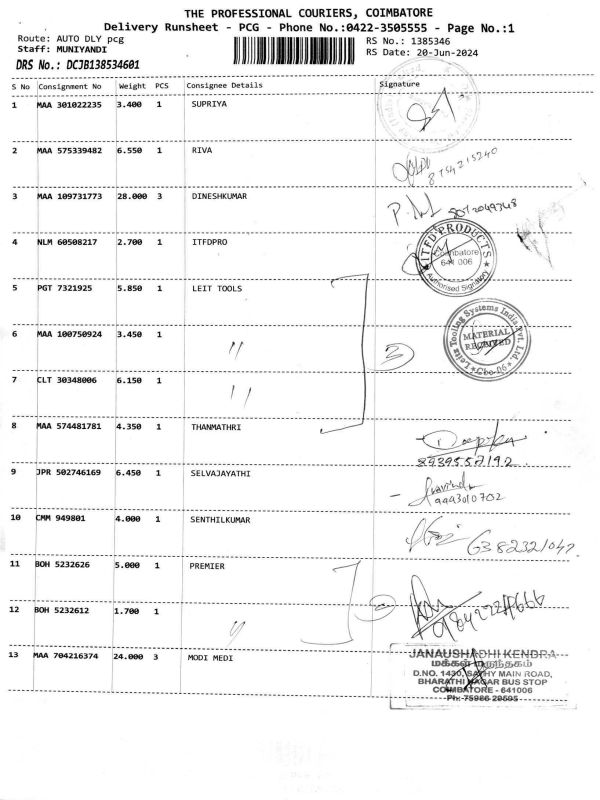 THE PROFESSIONAL COURIERS, COIMBATORE
Delivery Runsheet - PCG - Phone No.:0422-3505555 - Page No.:1
Route: AUTO DLY pcg RS No.: 1385346
Staff: MUNIYANDI RS Date: 20-Jun-2024
DRS No.: DCJB138534601
S No Consignment No Weight PCS Consignee Details Signature
1 MAA 301022235 3.400 1 SUPRIYA
2 MAA 575339482 6.550 1 RIVA
8754215240
3 MAA 109731773 28.000 3 DINESHKUMAR
4 NLM 60508217 2.700 1 ITFDPRO
ITFD PRODUCTS
Coimbatore
641 006
Authorised Signatory
5 PGT 7321925 5.850 1 LEIT TOOLS
6 MAA 100750924 3.450 1 "
3
Leitz Tooling Systems India Pvt. Ltd.
MATERIAL
RECEIVED
Cbe-06
7 CLT 30348006 6.150 1 "
8 MAA 574481781 4.350 1 THANMATHRI
Deepika
8939552192
9 JPR 502746169 6.450 1 SELVAJAYATHI
Aravind
9443010702
10 CMM 949801 4.000 1 SENTHILKUMAR
6382321047
11 BOH 5232626 5.000 1 PREMIER
12 BOH 5232612 1.700 1 "
13 MAA 704216374 24.000 3 MODI MEDI
JANAUSHADHI KENDRA
மக்கள் மருந்தகம்
D.NO. 1430, SATHY MAIN ROAD,
BHARATHI NAGAR BUS STOP
COIMBATORE - 641006
Ph: 75986 29595